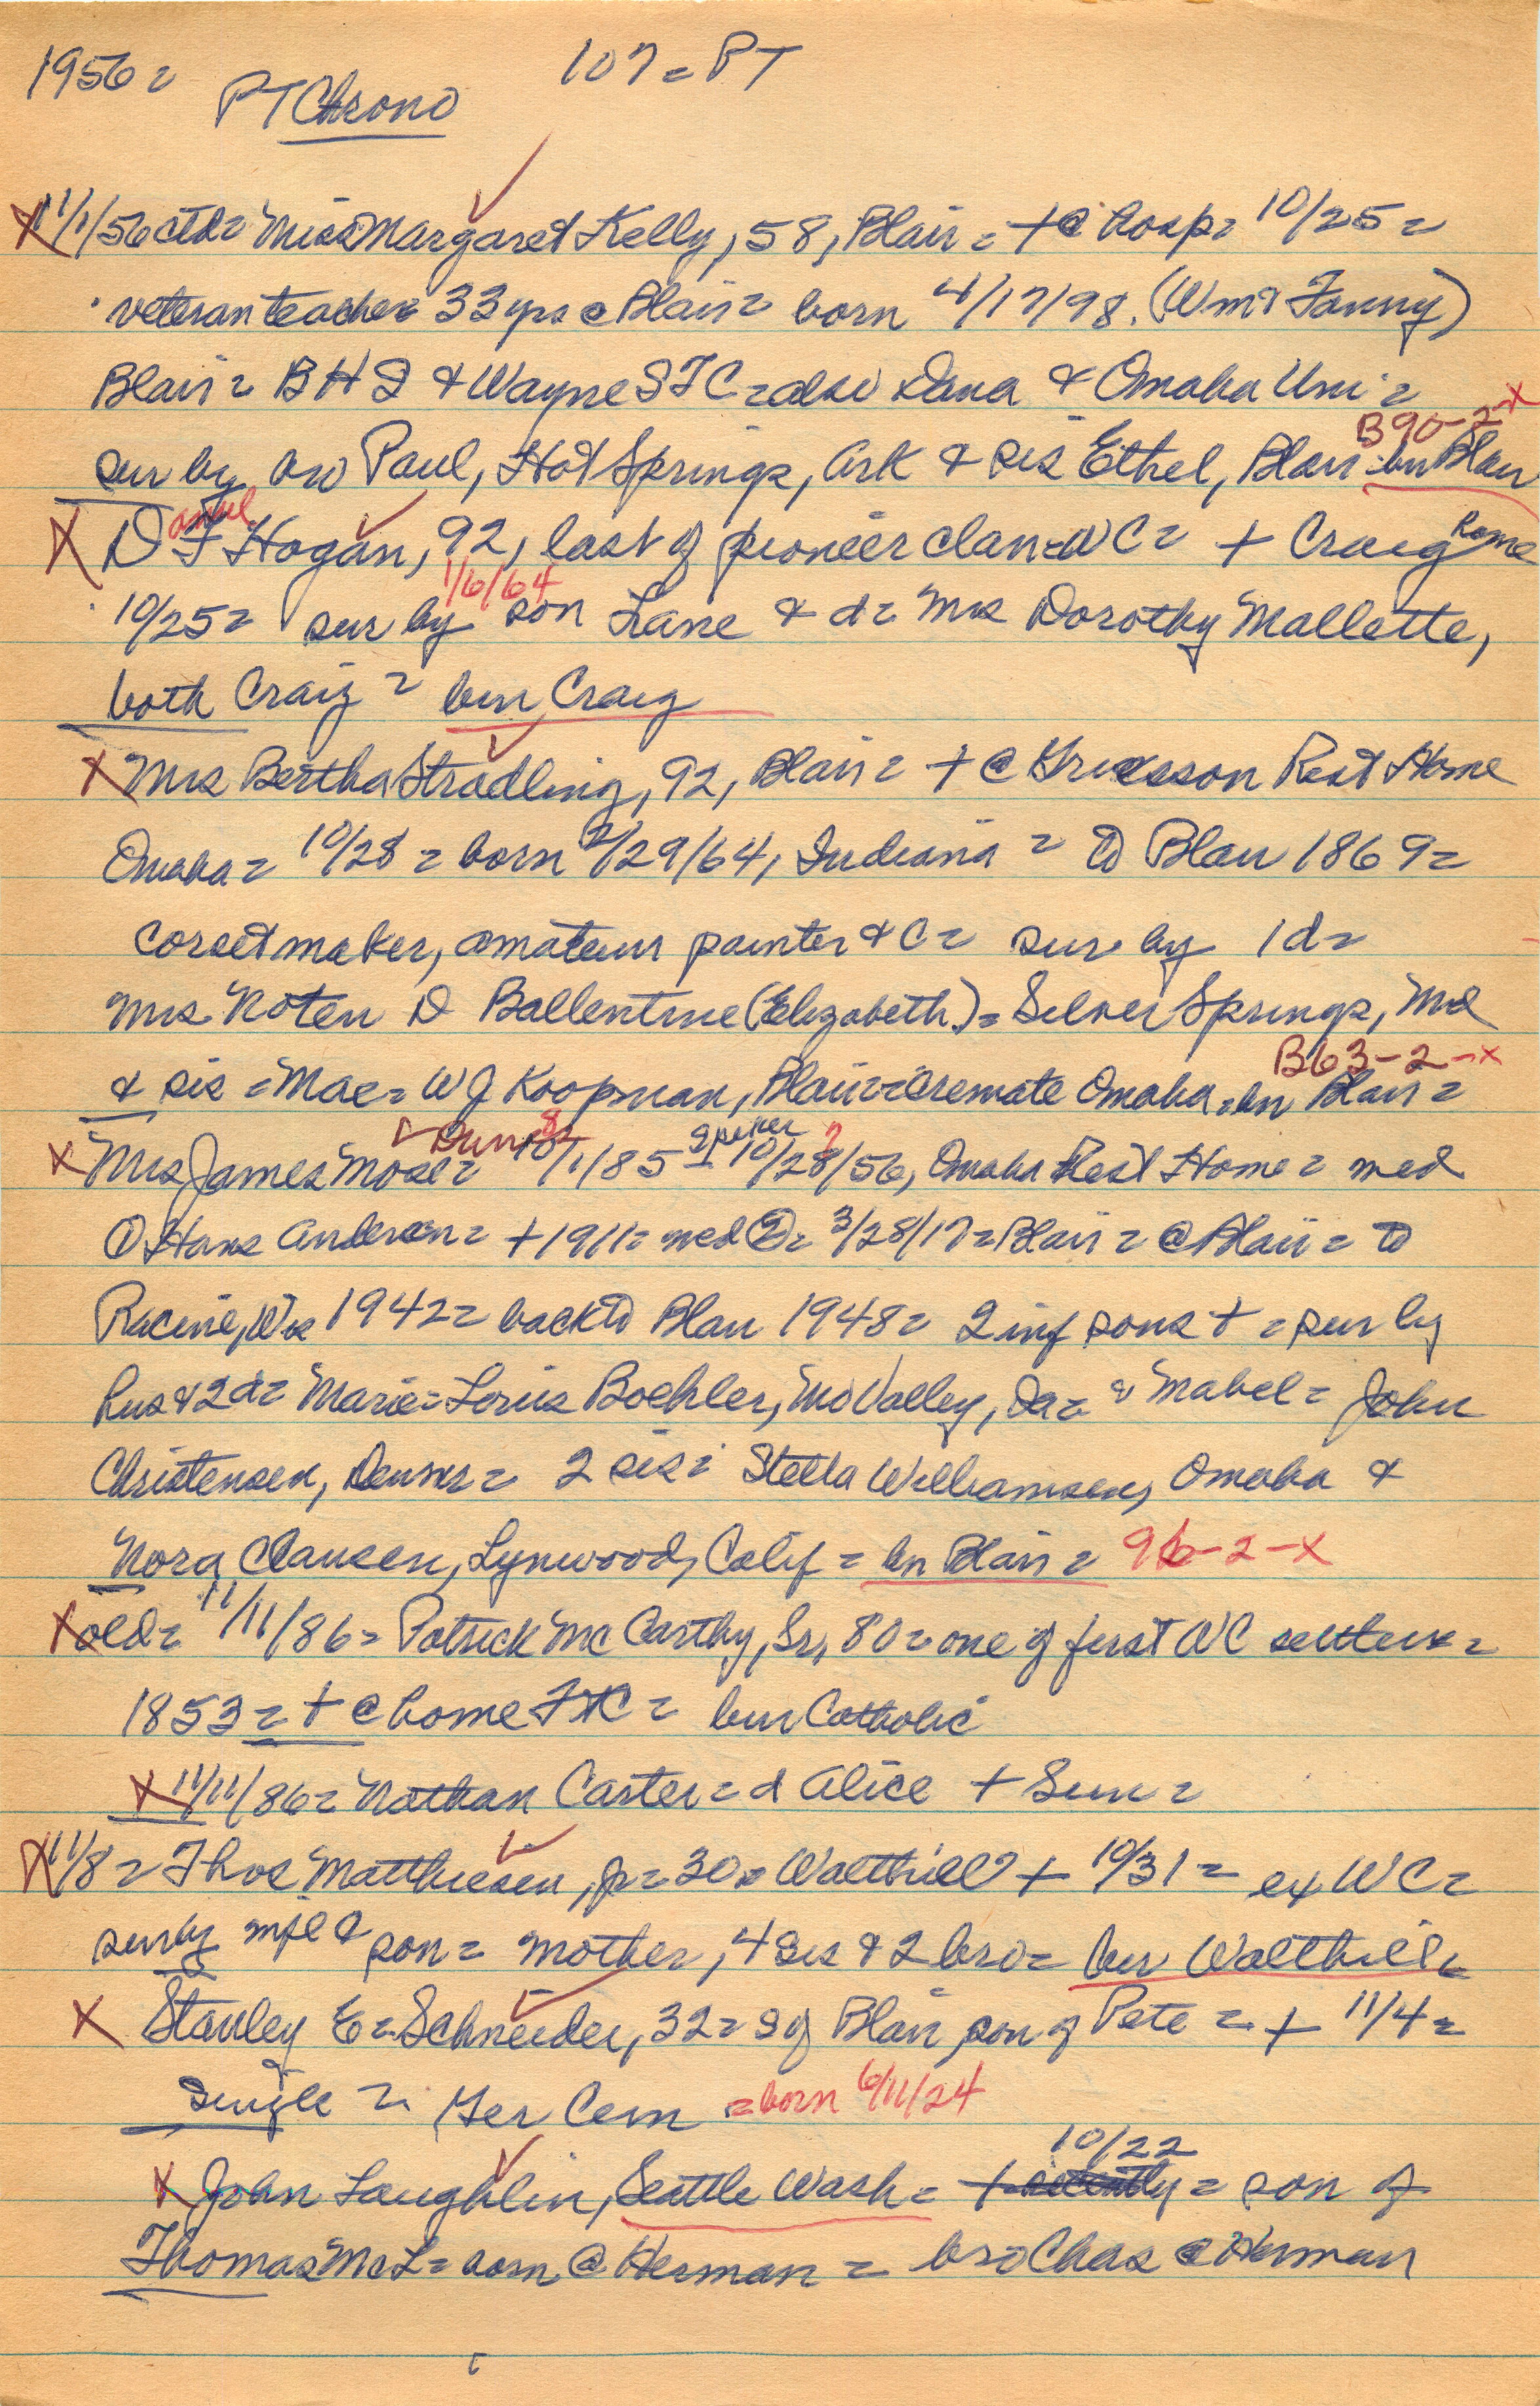 1956 = PT Chrono 107 = PT
11/1/56 ctd = Miss Margaret Kelly, 58, Blair = + @ hosp = 10/25 =
veteran teacher 33 yrs @ Blair = born 4/17/98. (Wm & Fanny)
Blair = BHS & Wayne STC = also Dana & Omaha Uni =
B90-2-x
sur by bro Paul, Hot Springs, Ark & sis Ethel, Blair = bur Blair
aniel
D F Hogan, 92, last of pioneer clan = WC = + Craig home
1/6/64
10/25 = sur by son Lane & d = Mrs Dorothy Mallette,
both Craig = bur Craig
x Mrs Bertha Stradling, 92, Blair = + @ Rest Home
Omaha = 10/28 = born 2/29/64, Indiana = to Blair 1869 =
corset maker, amateur painter & C = sur by 1 d =
Mrs Noten D Ballentine (Elizabeth) = Silver Springs, Md
B63-2-x
& sis = Mae = WJ Koopman, Blair = cremate Omaha = bur Blair =
x Mrs James Mose = 10/1/85 10/28/56, Omaha Rest Home = med
① Hans Andersen = + 1911 = med ② = 3/28/17 = Blair = @ Blair = to
Racine, Wis 1942 = back to Blair 1948 = 2 inf sons + = sur by
hus & 2 d = Marie = Louis Boehler, Mo Valley, Ia = & Mabel = John
Christensen, Denver = 2 sis = Stella Williamsen, Omaha &
Nora Clausen, Lynwood, Calif = bur Blair = 96-2-x
x old = 11/11/86 = Patrick McCarthy, Sr, 80 = one of first WC settlers =
1853 = + @ home FtC = bur Catholic
x 11/11/86 = Nathan Carter = d Alice + Sun =
x 11/8 = Thos Matthiesen, jr = 30 = Walthill + 10/31 = ex WC =
sur by wife & son = mother, 4 sis & 2 bro = bur Walthill =
x Stanley E = Schneider, 32 = S of Blair son of Pete = + 11/4 =
single = Ger Cem = born 6/11/24
10/22
x John Laughlin, Seattle Wash = + recently = son of
Thomas McL = born @ Herman = bro Chas @ Herman